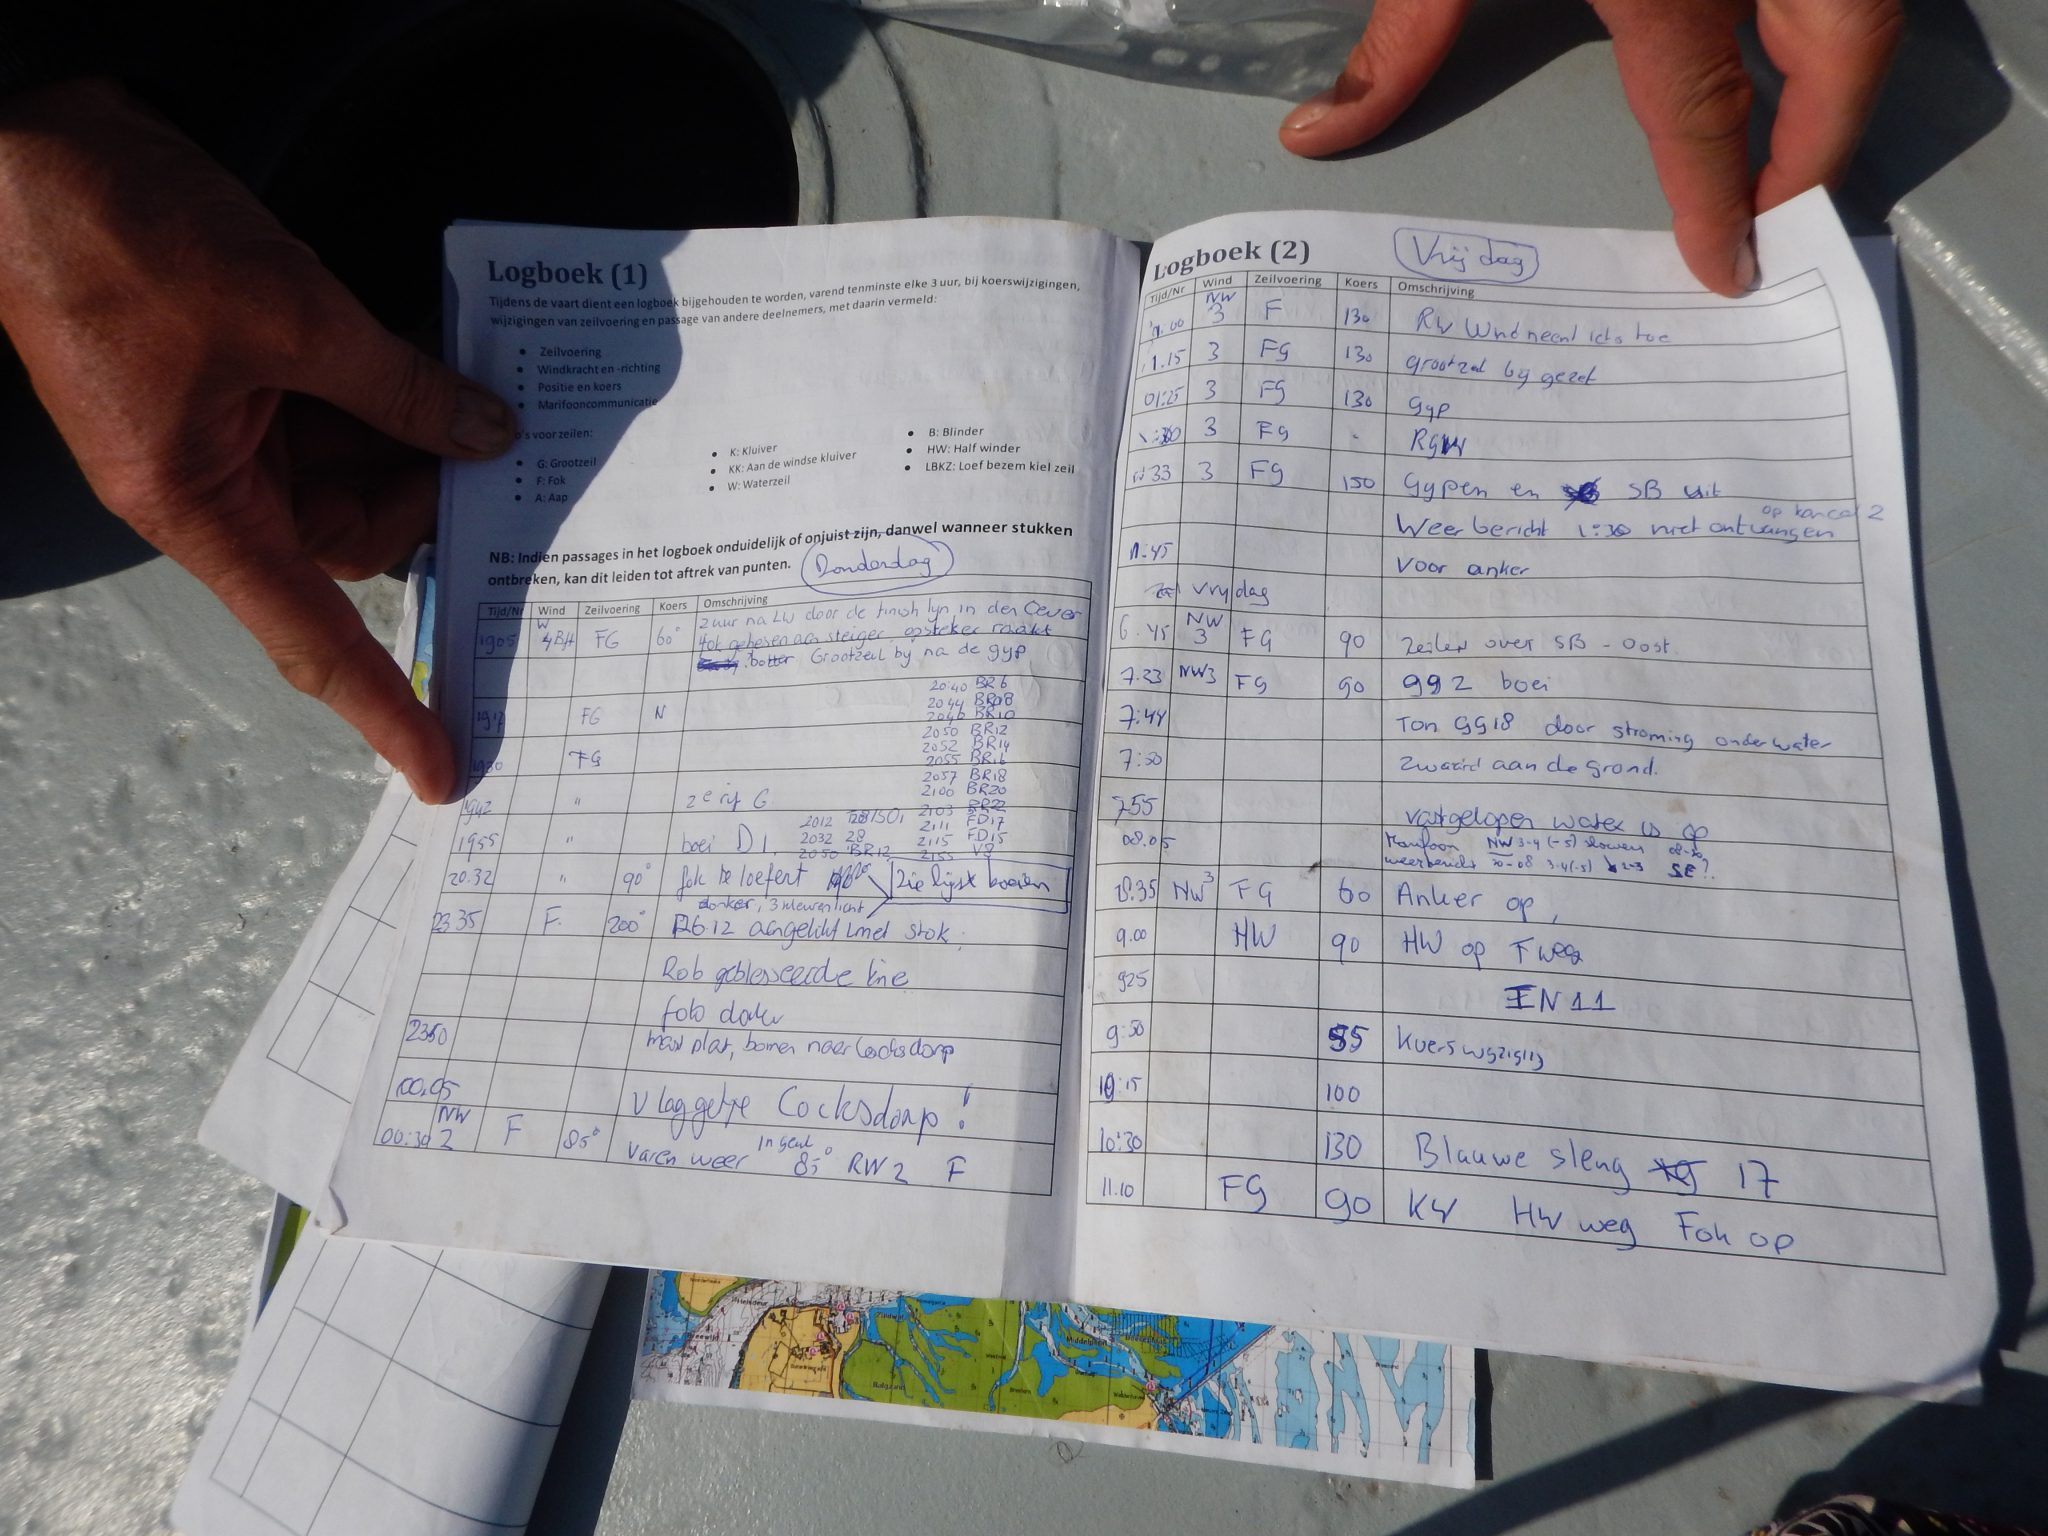 Logboek (1)
Tijdens de vaart dient een logboek bijgehouden te worden, varend tenminste elke 3 uur, bij koerswijzigingen,
wijzigingen van zeilvoering en passage van andere deelnemers, met daarin vermeld:
• Zeilvoering
• Windkracht en -richting
• Positie en koers
• Marifooncommunicatie
o's voor zeilen:
• G: Grootzeil
• F: Fok
• A: Aap
• K: Kluiver
• KK: Aan de windse kluiver
• W: Waterzeil
• B: Blinder
• HW: Half winder
• LBKZ: Loef bezem kiel zeil
NB: Indien passages in het logboek onduidelijk of onjuist zijn, danwel wanneer stukken
ontbreken, kan dit leiden tot aftrek van punten.
Donderdag
Tijd/Nr Wind Zeilvoering Koers Omschrijving
2 uur na LW door de finish lyn in den Oever
1905 W FG 60°
Grootzeil bij na de gyp
20:40 BR6
2044 BR08
2046 BR10
1917 FG N
2050 BR12
2052 BR14
1930 FG 2055 BR16
2057 BR18
2100 BR20
1942 " 2e rif G.
2103 BR22
2012
2111 FD17
1955 " boei D1. 2032 28 2115 FD15
2050 BR12 2155 V3
20.32 " 90° fok te loefert Zie lijst boeien
donker, 3 kleurenlicht
2335 F. 200° met stok
Rob geblesseerde knie
foto donker
2350 mast plat, bomen naar Cocksdorp
00.05 Vlaggetje Cocksdorp!
NW in geul
00:30 2 F 85° varen weer 85° RW 2 F
Logboek (2)
Vrijdag
Tijd/Nr Wind Zeilvoering Koers Omschrijving
NW
3 F 130 RW Wind neemt iets toe
1.15 3 FG 130 grootzeil by gezet
01:25 3 FG 130 Gyp
3 FG - RGW
33 3 FG 150 Gypen en SB uit
op kanaal 2
Weerbericht 1:30 niet ontvangen
1:45 voor anker
vrijdag
6.45 NW 3 FG 90 Zeilen over SB - Oost.
7.23 NW3 FG 90 GG2 boei
7:44 Ton GG18 door stroming onder water
7:50 Zwaard aan de grond.
755 vastgelopen water is op
08.05 Marifoon NW 3-4 (-5)
weerbericht 3-4(-5) 2-3 SE?
8.35 NW3 FG 60 Anker op,
9.00 HW 90 HW op F weg
925 IN11
9:50 55 Koerswijziging
10:15 100
10:30 130 Blauwe sleng 17
11.10 FG 90 KW HW weg Fok op